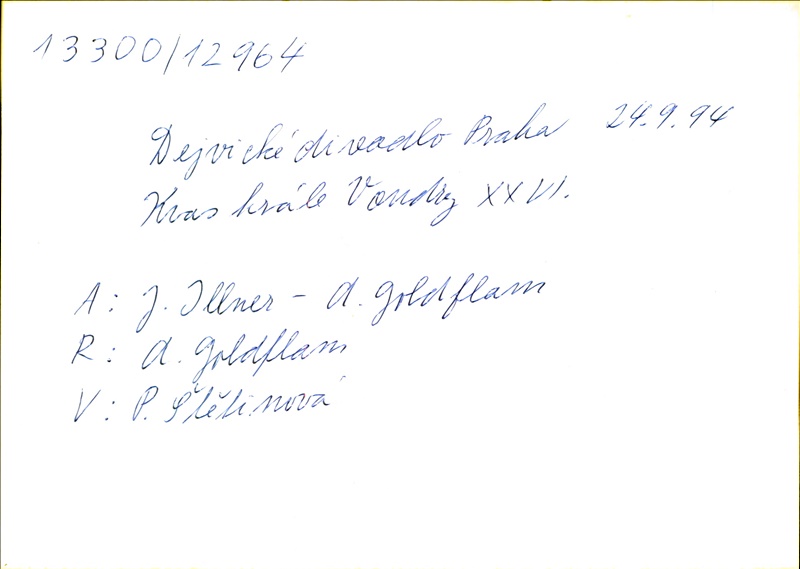 13300/12964
Dejvické divadlo Praha 24.9.94
Kvas krále Vondry XXVI.
A: J. Illner - A. Goldflam
R: A. Goldflam
V: P. Štětinová